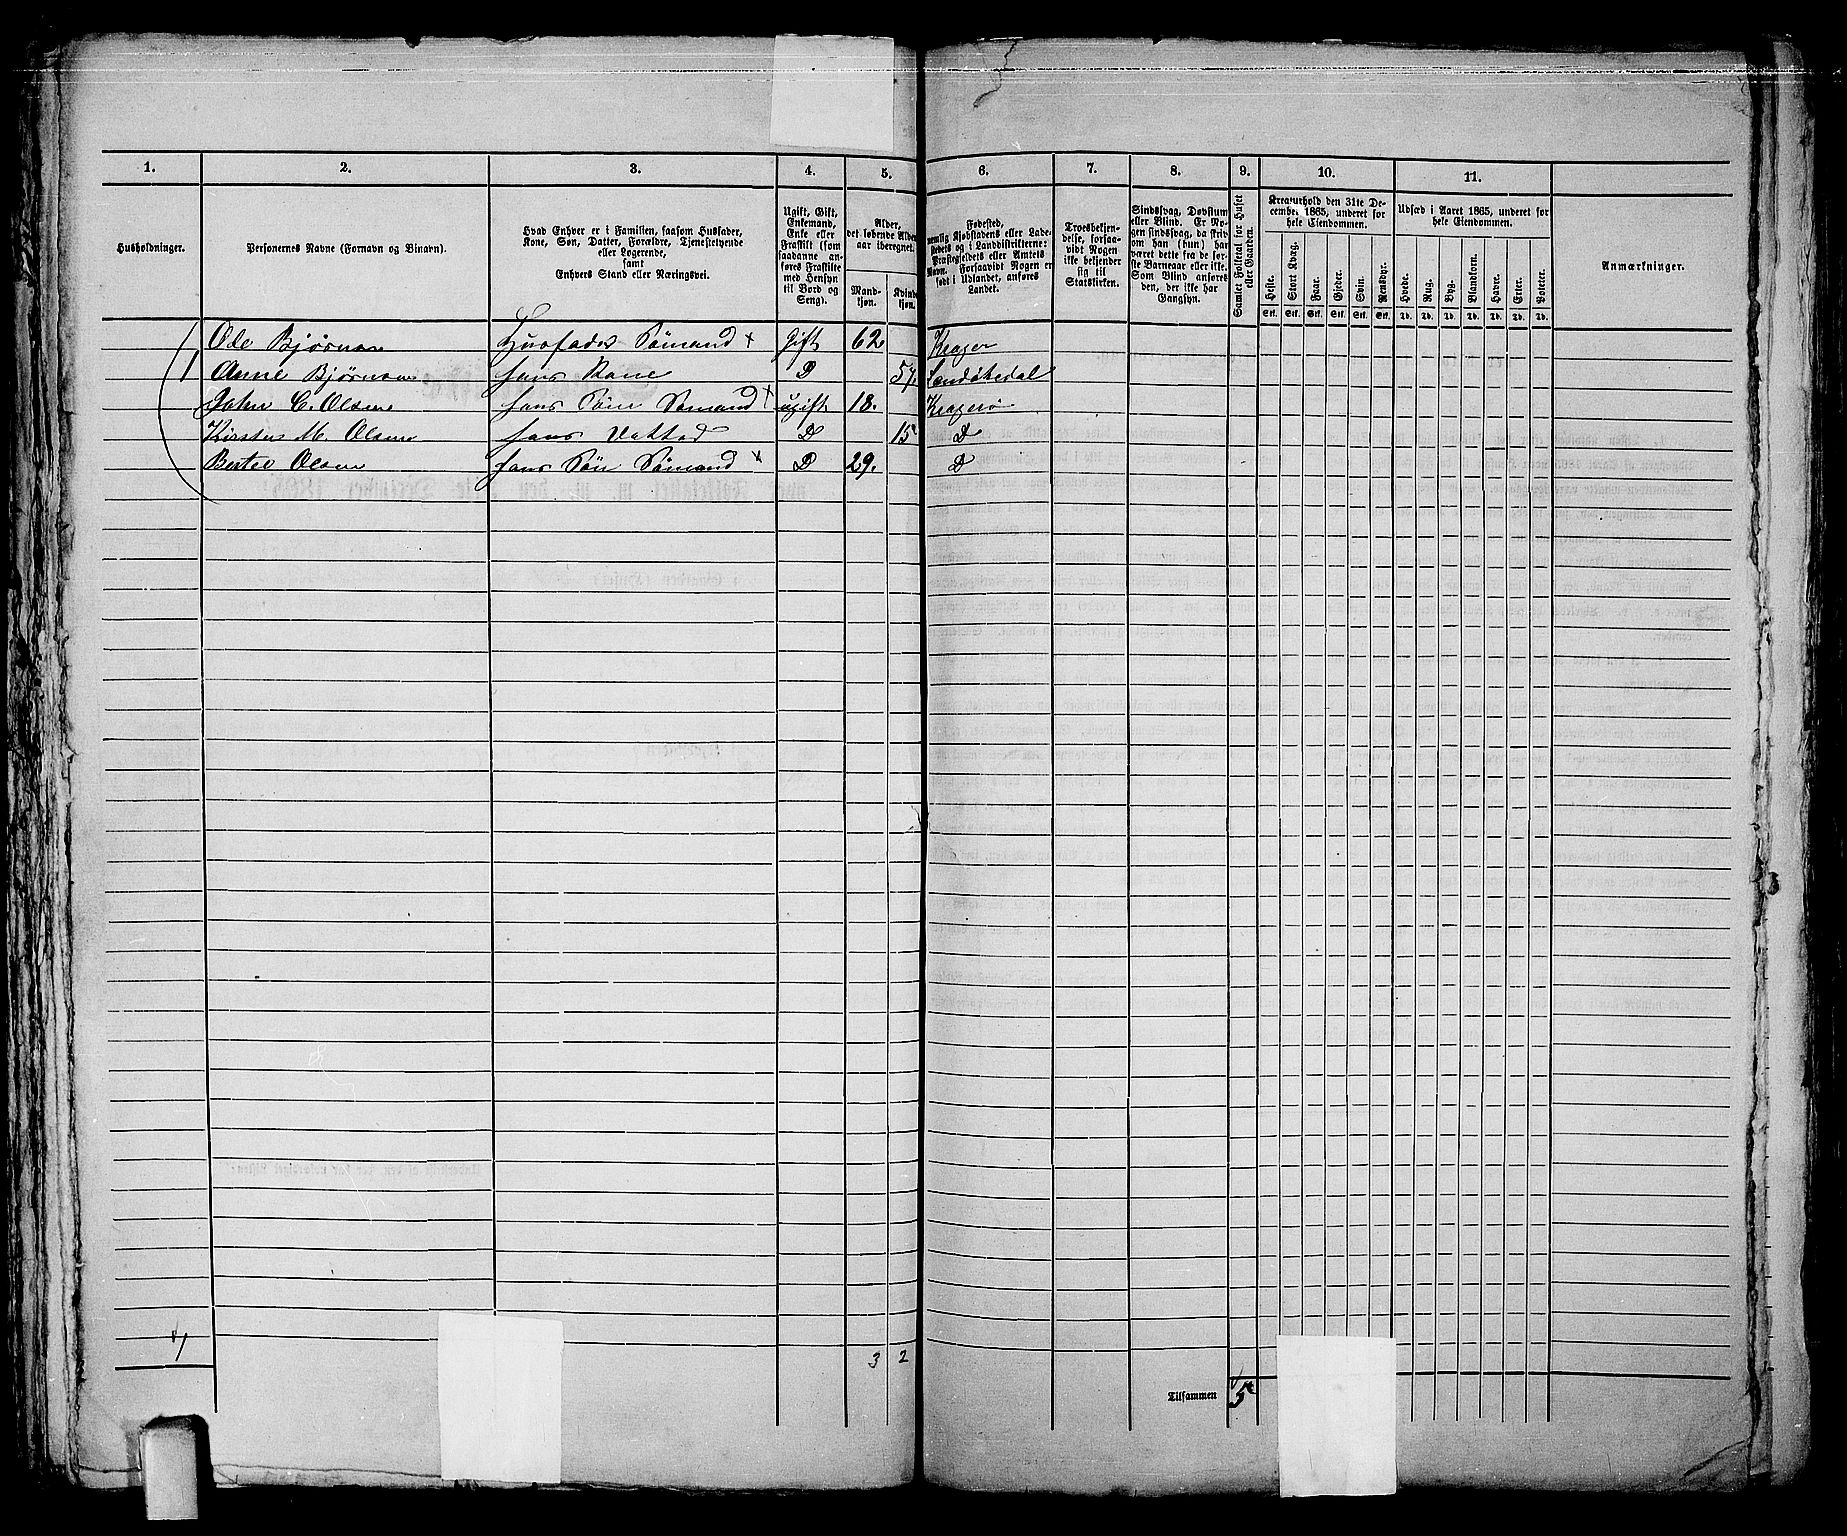 1. 2. 3. 4. 5. 6. 7. 8. 9. 10. 11.
Husholdninger.
Personernes Navne (Fornavn og Binavn).
Hvad Enhver er i Familien, saasom Husfader,
Kone, Søn, Datter, Forældre, Tjenestetyende
eller Logerende,
samt
Enhvers Stand eller Næringsvei.
Ugift, Gift,
Enkemand,
Enke eller
Fraskilt (som
saadanne an-
føres Fraskilte
med Hensyn
til Bord og
Seng).
Alder,
det løbende Alders-
aar iberegnet.
Mand-
kjøn.
Kvinde-
kjøn.
Fødested,
nemlig Kjøbstadens eller Lade-
stedets og i Landdistrikterne:
Præstegjeldets eller Amtets
Navn. Forsaavidt Nogen er
født i Udlandet, anføres
Landet.
Troesbekjen-
delse, forsaa-
vidt Nogen
ikke bekjender
sig til
Statskirken.
Sindssvag, Døvstum
eller Blind. Er No-
gen sindssvag, da skriv
om han (hun) har
været dette fra de før-
ste Barneaar eller ikke.
Som Blind anføres
den, der ikke har
Gangsyn.
Samlet Folketal for Huset
eller Gaarden.
Kreaturhold den 31te De-
cember 1865, underet for
hele Eiendommen.
Heste. Stort Kvæg. Faar. Gjeder. Svin. Rensdyr.
Stk. Stk. Stk. Stk. Stk. Stk.
Udsæd i Aaret 1865, underet for
hele Eiendommen.
Hvede. Rug. Byg. Blandkorn. Havre. Erter. Poteter.
Td. Td. Td. Td. Td. Td. Td.
Anmærkninger.
Ole Bjørnsen Husfader Sömand x Gift 62 Krager
1 Anne Bjørnsen hans Kone D 57. Sandøkedal
John C. Olsen hans Sön Sömand x ugift 18. Kragerö
Kirstus M. Olsen hans Datter D 15 D
Bertel Olsen hans Sön Sömand x D 29. D
1 3 2
Tilsammen 5